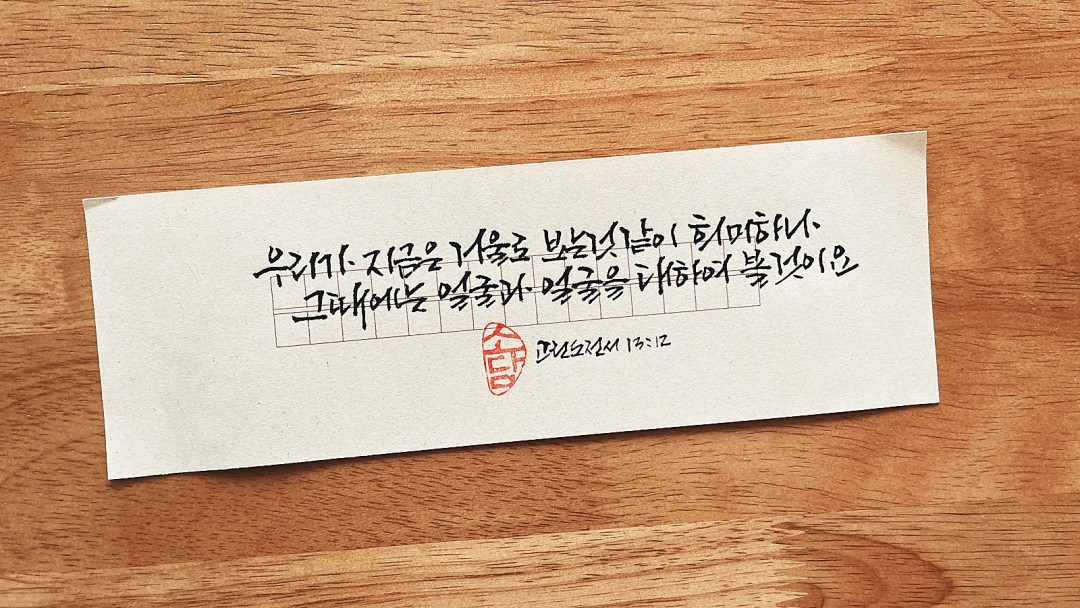 우리가 지금은 거울로 보는것같이 희미하나
그때에는 얼굴과 얼굴을 대하여 볼것이요
소담
고린도전서 13:12